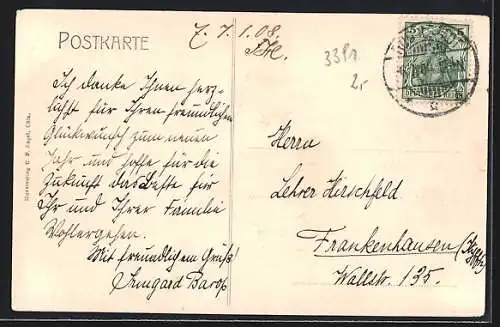 POSTKARTE
Z. 7. 1. 08.
3391
2,-
Ich danke Ihnen herz-
lichst für Ihren freundlichen
Glückwunsch zum neuen
Jahr und hoffe für die
Zukunft das Beste für
Ihr und Ihrer Familie
Wohlergehen.
Mit freundlichem Gruß!
Irmgard Barop
Herrn
Lehrer Hirschfeld
Frankenhausen
Wallstr. 135.